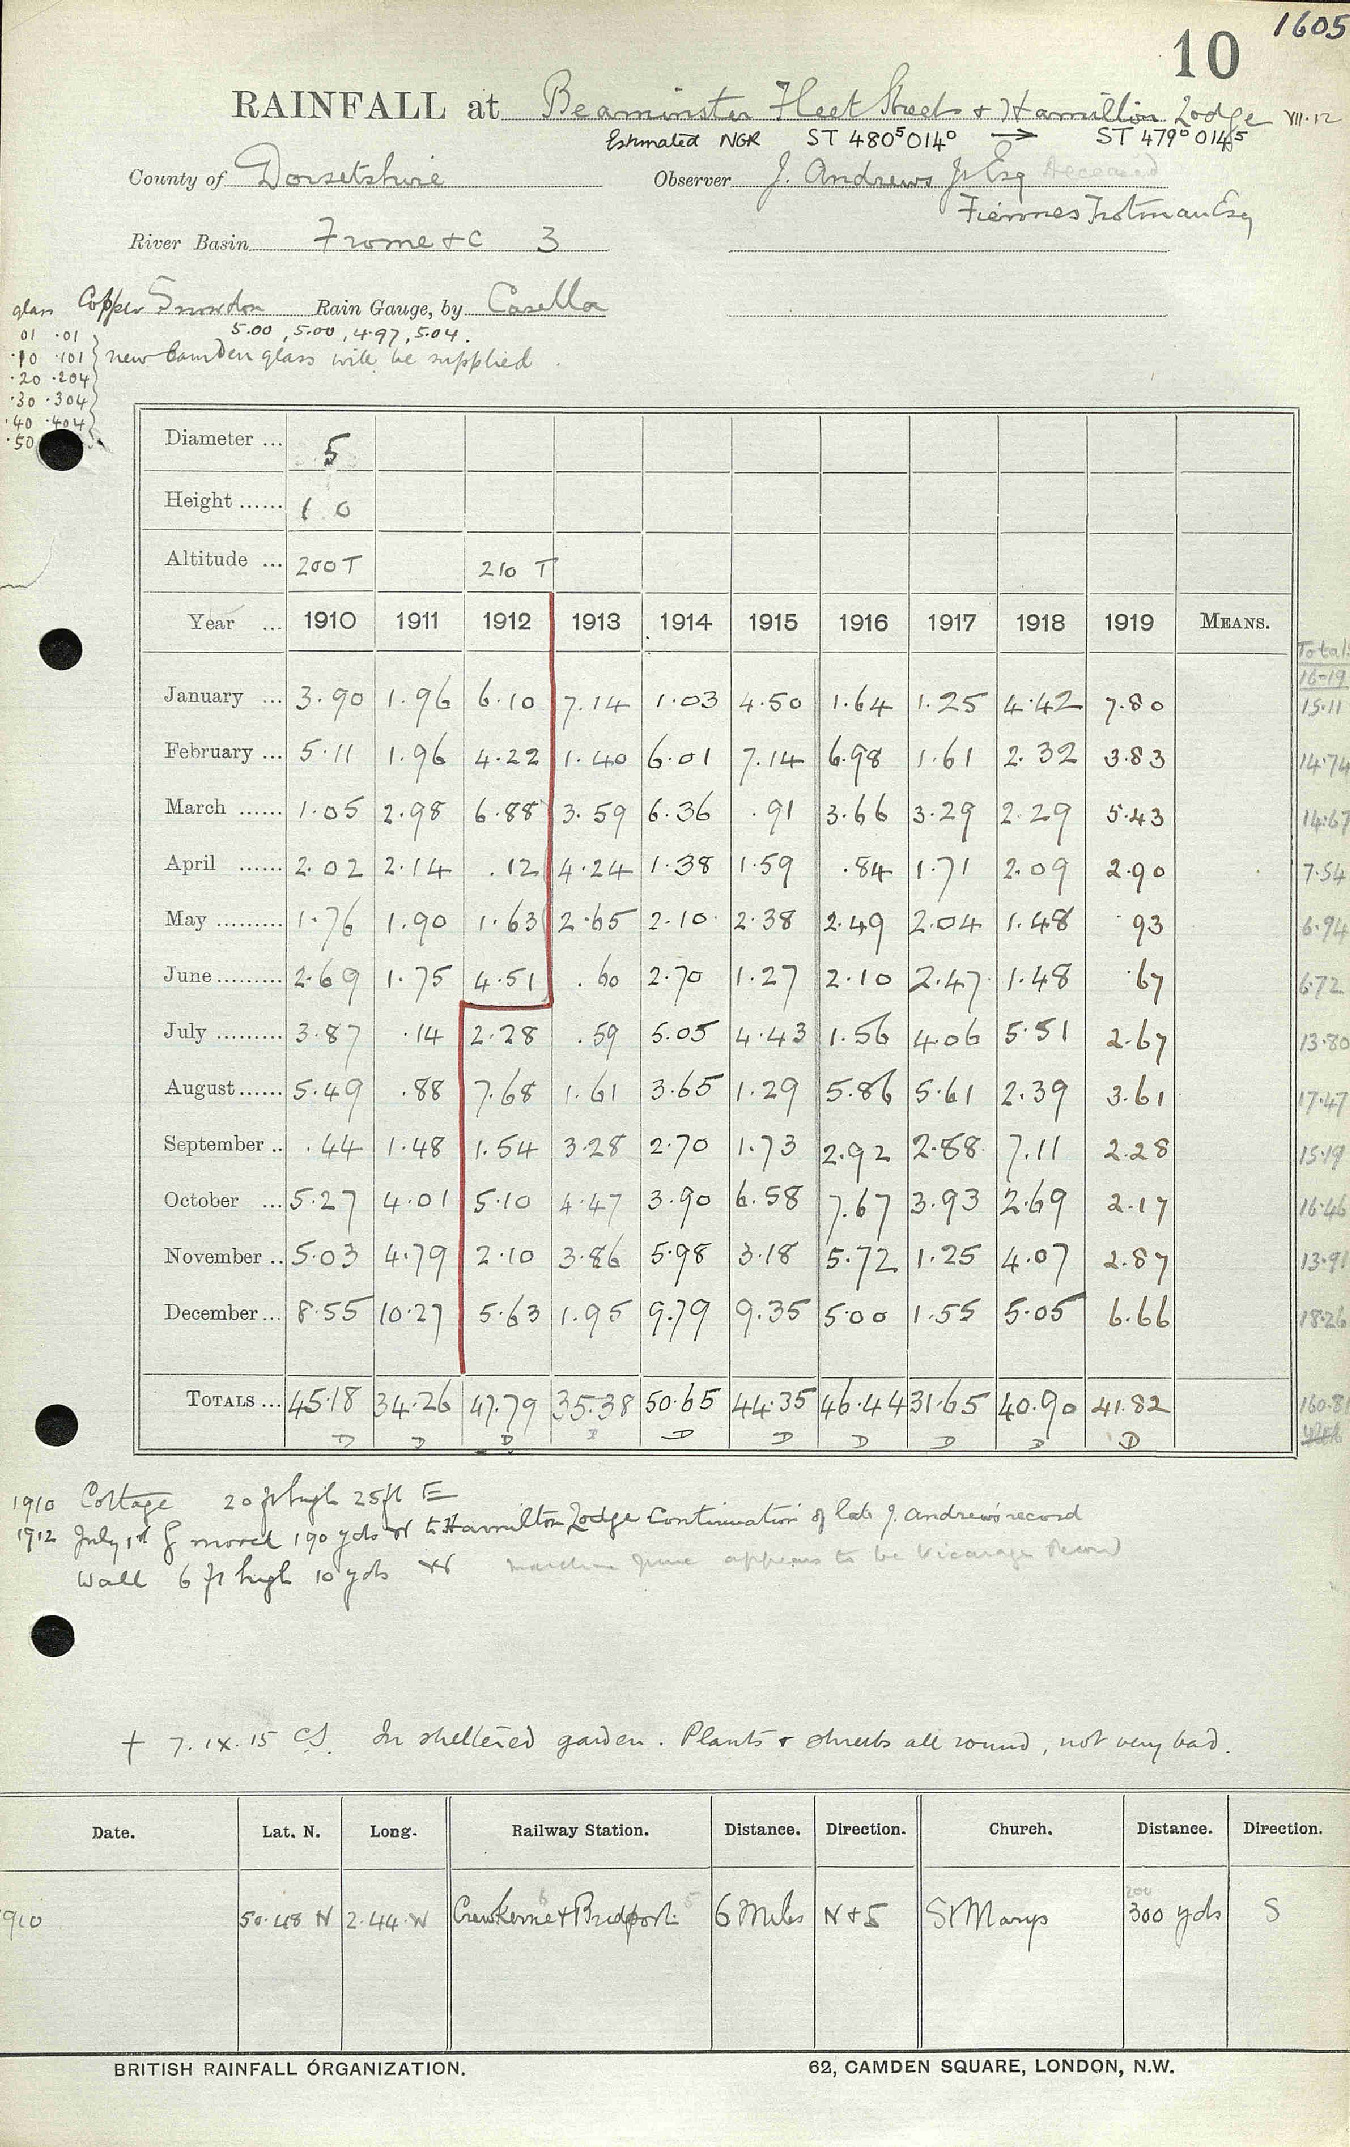 1605
10
RAINFALL at Beaminster Fleet Street & Hamilton Lodge VII.12
Estimated NGR ST 480⁵014⁰ → ST 479⁰014⁵
County of Dorsetshire Observer J. Andrews Jr Esq Deceased
Fiennes Trotman Esq
River Basin Frome &c 3
Copper Snowdon Rain Gauge, by Casella
glass 5.00, 5.00, 4.97, 5.04.
01 .01
.10 .101 new Camden glass will be supplied
.20 .204
.30 .304
.40 .404
.50
Diameter ... 5
Height ...... 1 0
Altitude ... 200 T 210 T
Year ... 1910 1911 1912 1913 1914 1915 1916 1917 1918 1919 MEANS. Total 16-19
January ... 3.90 1.96 6.10 7.14 1.03 4.50 1.64 1.25 4.42 7.80 15.11
February ... 5.11 1.96 4.22 1.40 6.01 7.14 6.98 1.61 2.32 3.83 14.74
March ...... 1.05 2.98 6.88 3.59 6.36 .91 3.66 3.29 2.29 5.43 14.67
April ...... 2.02 2.14 .12 4.24 1.38 1.59 .84 1.71 2.09 2.90 7.54
May ......... 1.76 1.90 1.63 2.65 2.10 2.38 2.49 2.04 1.48 93 6.94
June ......... 2.69 1.75 4.51 .60 2.70 1.27 2.10 2.47 1.48 .67 6.72
July ......... 3.87 .14 2.28 .59 5.05 4.43 1.56 4.06 5.51 2.67 13.80
August ...... 5.49 .88 7.68 1.61 3.65 1.29 5.86 5.61 2.39 3.61 17.47
September .. .44 1.48 1.54 3.28 2.70 1.73 2.92 2.88 7.11 2.28 15.19
October ... 5.27 4.01 5.10 4.47 3.90 6.58 7.67 3.93 2.69 2.17 16.46
November .. 5.03 4.79 2.10 3.86 5.98 3.18 5.72 1.25 4.07 2.87 13.91
December ... 8.55 10.27 5.63 1.95 9.79 9.35 5.00 1.55 5.05 6.66 18.26
TOTALS ... 45.18 34.26 47.79 35.38 50.65 44.35 46.44 31.65 40.90 41.82 160.81
D D D D D D D D D D
1910 Cottage 20 ft high 25 ft E
1912 July 1st G moved 190 yds W to Hamilton Lodge Continuation of late J. Andrews' record
Wall 6 ft high 10 yds W June appears to be Vicarage Record
+ 7.IX.15 CS. In sheltered garden. Plants & shrubs all round, not very bad.
Date. Lat. N. Long. Railway Station. Distance. Direction. Church. Distance. Direction.
200
1910 50.48 N 2.44 W Crewkerne & Bridport 6 Miles N & S St Marys 300 yds S
BRITISH RAINFALL ORGANIZATION. 62, CAMDEN SQUARE, LONDON, N.W.